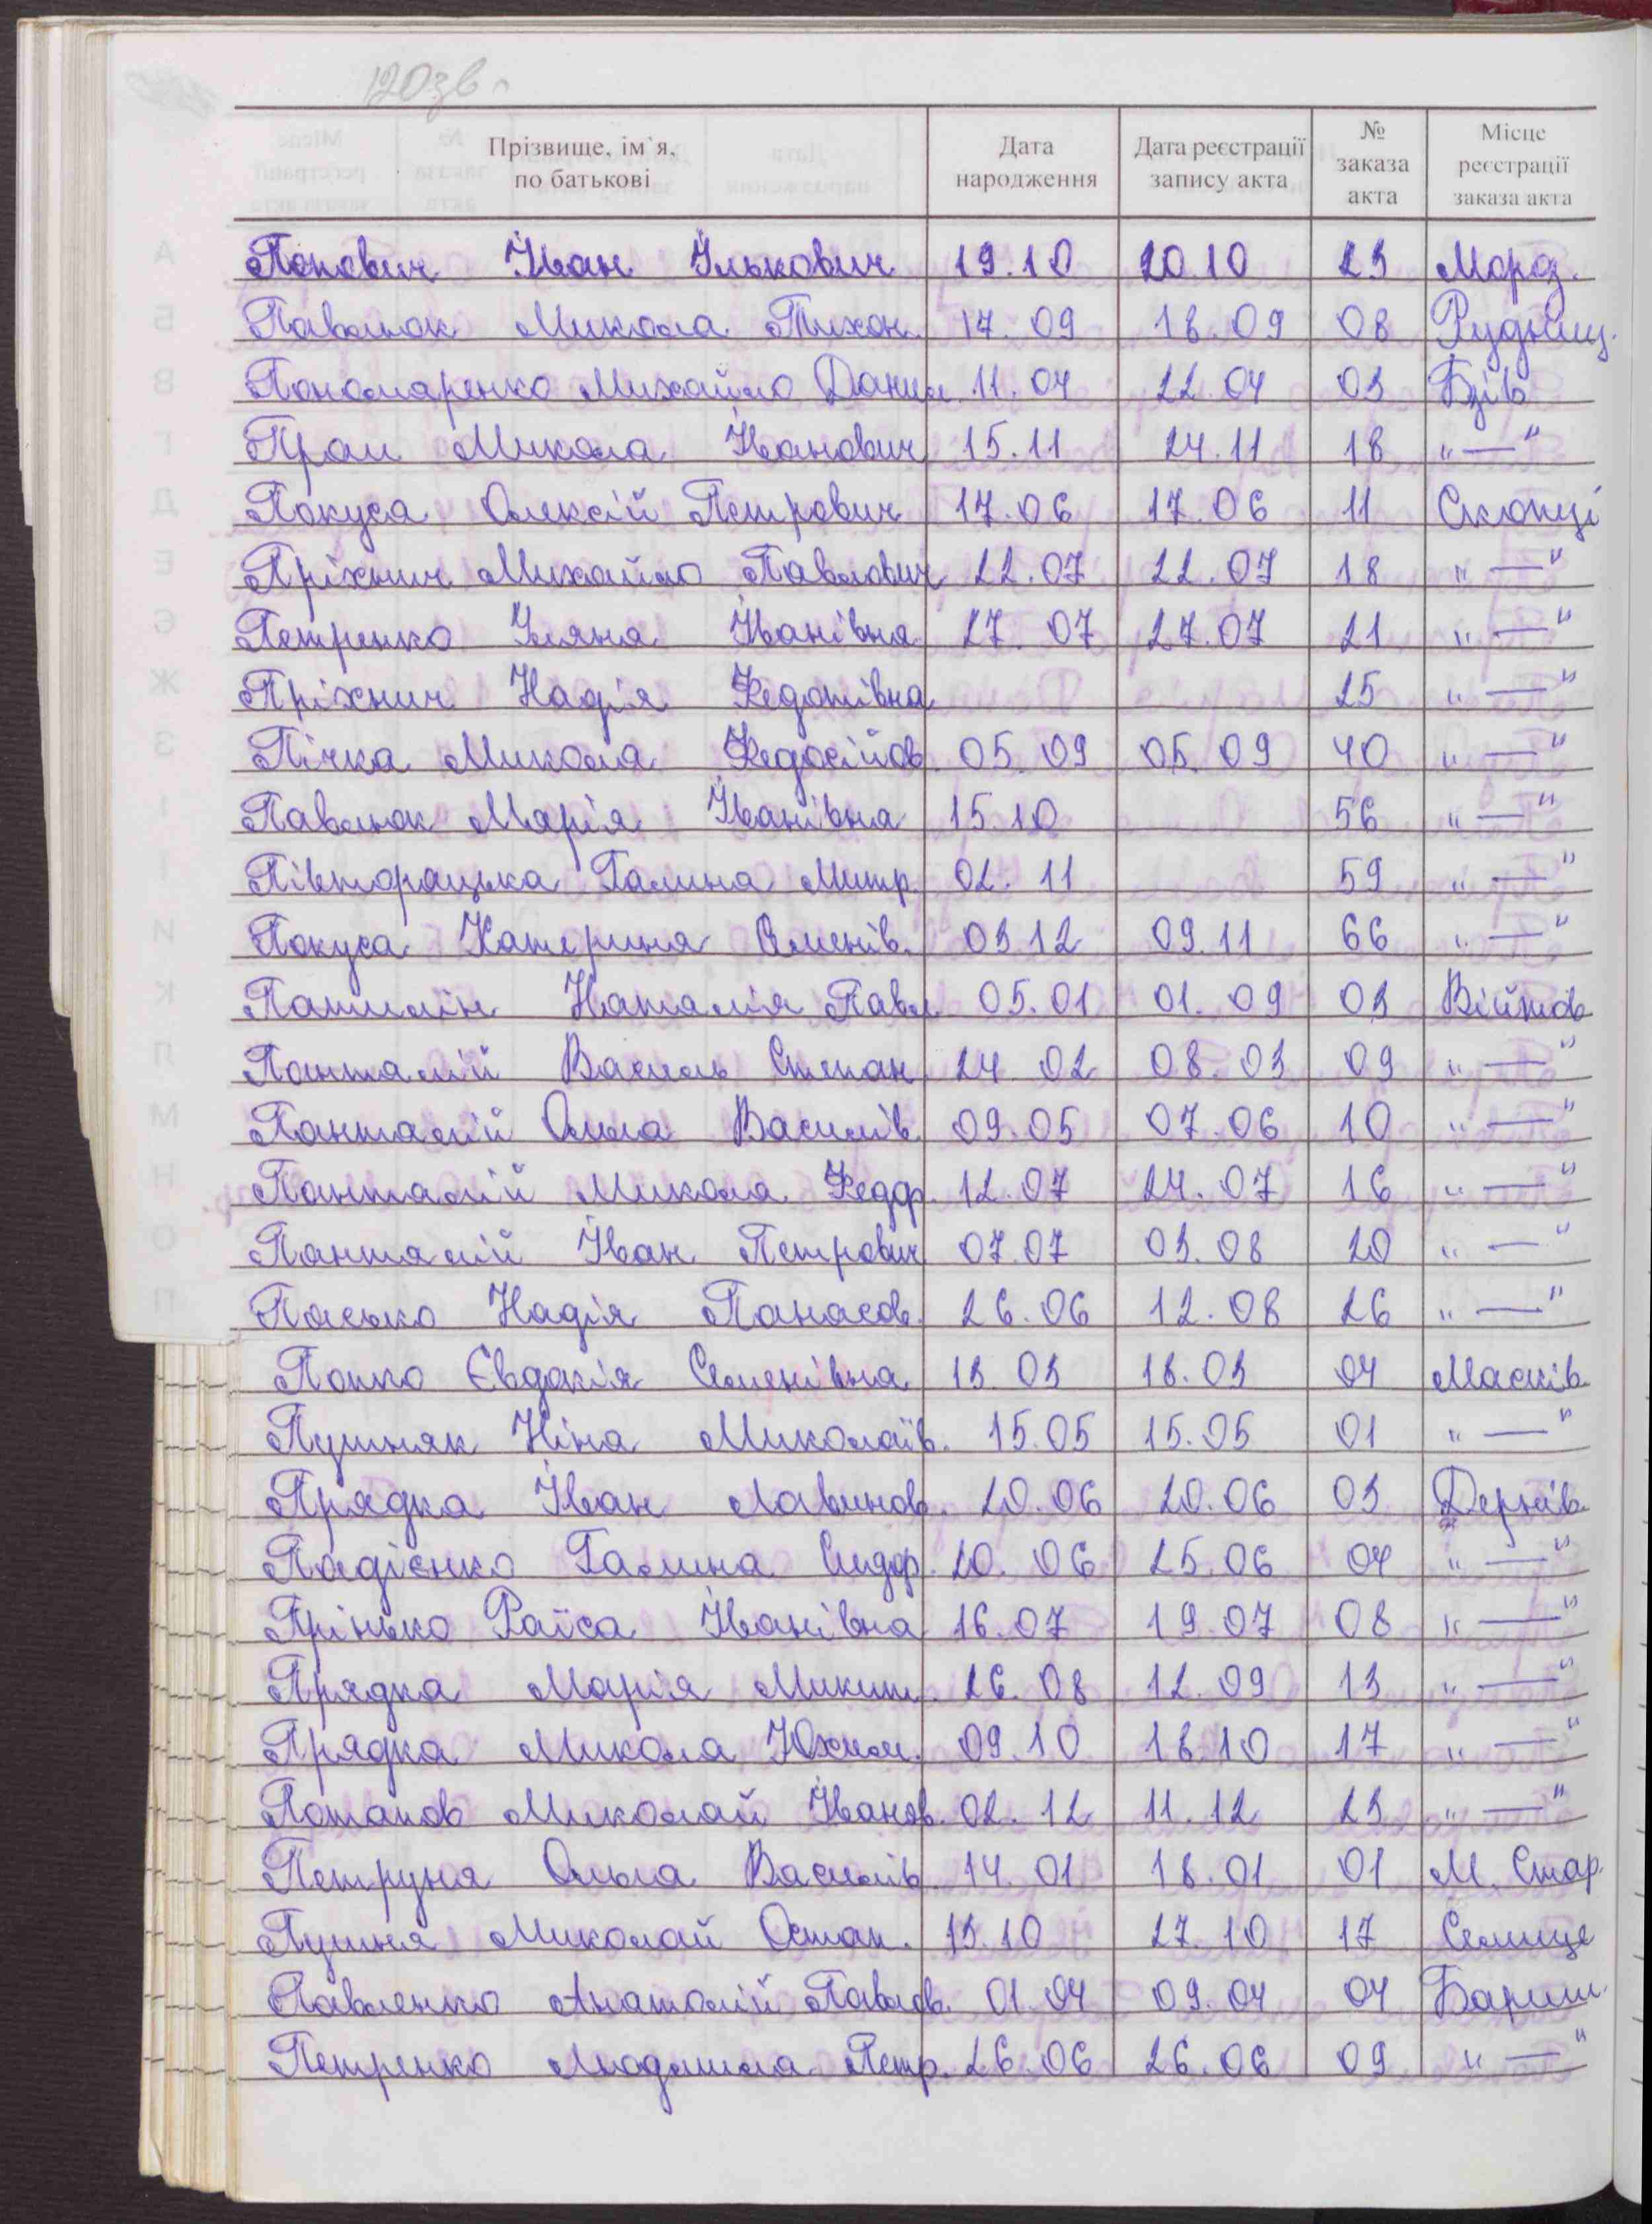 120зв.
Прізвище, ім`я, по батькові Дата народження Дата реєстрації запису акта № заказа акта Місце реєстрації заказа акта
Попович Іван Ількович 19.10 20.10 23 Мороз.
Павлюк Микола Тихон. 17.09 18.09 08 Рудниц.
Пономаренко Михайло Данил. 11.04 22.04 03 Бзів
Прам Микола Іванович 15.11 24.11 18 „—“
Покуса Олексій Петрович 17.06 17.06 11 Скопці
Пріхнич Михайло Павлович 22.07 22.07 18 „—“
Петренко Уляна Іванівна 27.07 27.07 21 „—“
Пріхнич Надія Федотівна 25 „—“
Пічка Микола Федосійов. 05.09 05.09 40 „—“
Павлюк Марія Іванівна 15.10 56 „—“
Півторацька Галина Митр. 02.11 59 „—“
Покуса Катерина Оленів. 03.12 09.11 66 „—“
Наталія Павл. 05.01 01.09 03 Війтов.
Панталій Василь Степан. 24.02 08.03 09 „—“
Панталій Ольга Василів. 09.05 07.06 10 „—“
Панталій Микола Федор. 12.07 24.07 16 „—“
Панталій Іван Петрович 07.07 03.08 20 „—“
Пасько Надія Панасов. 26.06 12.08 26 „—“
Попко Євдокія Семенівна 13.03 18.03 04 Масків.
Пушняк Ніна Миколаїв. 15.05 15.05 01 „—“
Прядка Іван Лавинов. 20.06 20.06 03 Дернів.
Падієнко Галина Сидор. 20.06 25.06 04 „—“
Прінько Раїса Іванівна 16.07 19.07 08 „—“
Прядка Марія Микит. 26.08 12.09 13 „—“
Прядка Микола Юхим. 09.10 18.10 17 „—“
Потапов Миколай Іванов. 02.12 11.12 23 „—“
Петруня Ольга Василів. 14.01 18.01 01 М. Стар.
Пушня Миколай Остап. 13.10 27.10 17 Селище
Павленко Анатолій Павлов. 01.04 09.04 04 Бариш.
Петренко Людмила Петр. 26.06 26.06 09 „—“